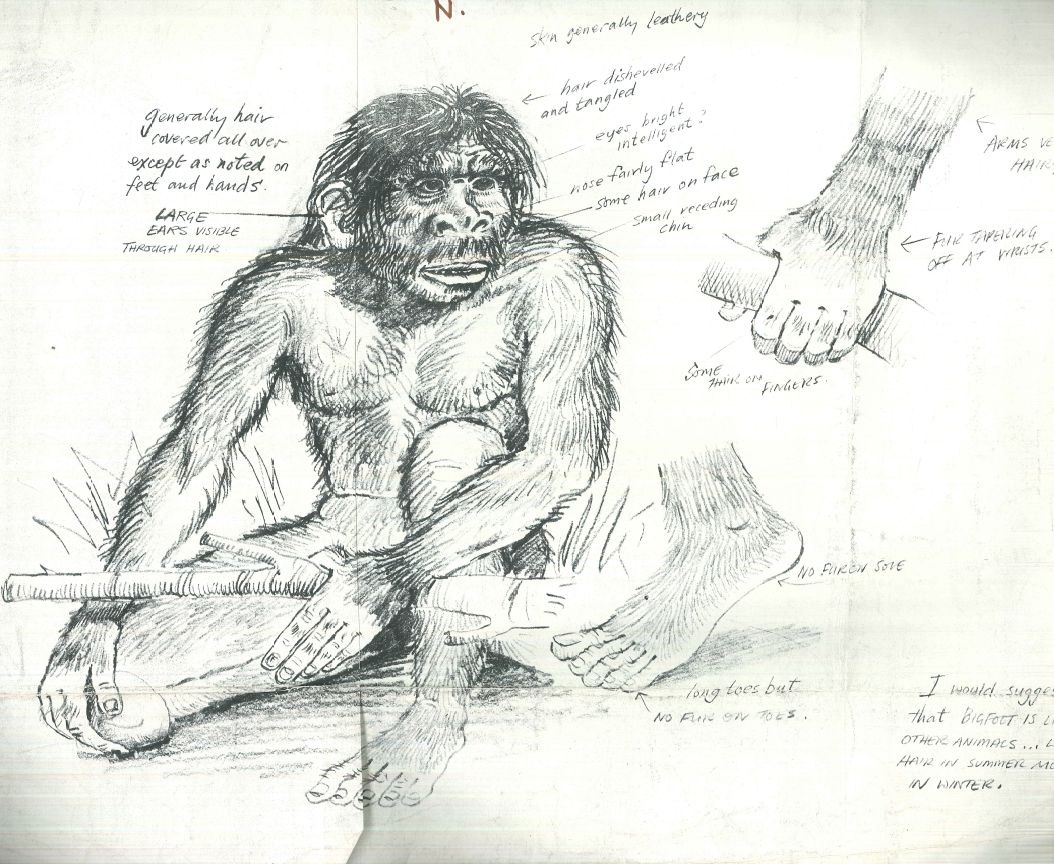 N.
skin generally leathery
hair dishevelled
and tangled
eyes bright
intelligent?
nose fairly flat
some hair on face
small receding
chin
generally hair
covered all over
except as noted on
feet and hands.
LARGE
EARS VISIBLE
THROUGH HAIR
ARMS VE
HAIRY
FUR TAPERING
OFF AT WRISTS.
SOME
HAIR ON FINGERS.
NO FUR ON SOLE
long toes but
NO FUR ON TOES.
I would sugges
that BIGFOOT IS LI
OTHER ANIMALS... L
HAIR IN SUMMER MO
IN WINTER.